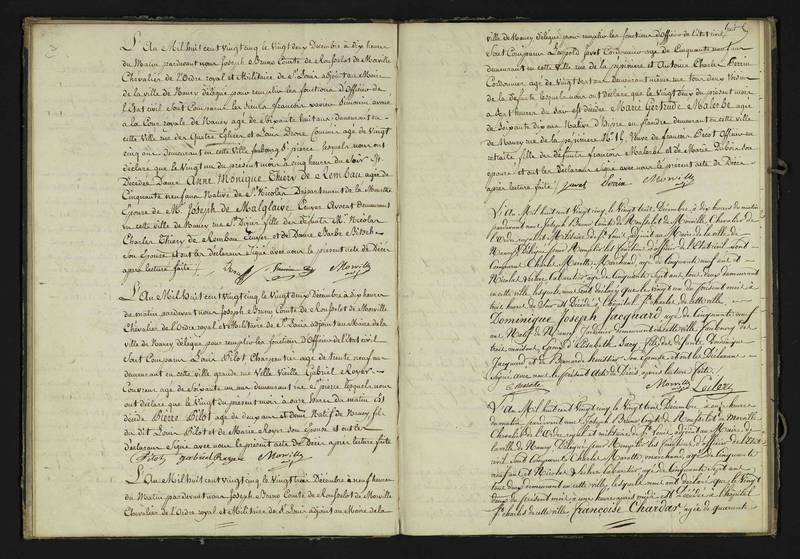 L'An Mil huit cent vingt cinq le vingt deux Décembre à dix heures
du Matin pardevant nous Joseph Bruno Comte de
Chevalier de l'Ordre royal et Militaire de St Louis adjoint au Maire
de la ville de Nancy délégué pour remplir les fonctions d'Officier de
l'Etat civil Sont Comparus les Sieurs François xavier avoué
à la Cour royale de Nancy agé de Soixante huit ans demeurant en
cette Ville rue des quatre Eglises et Louis agé de vingt
cinq ans demeurant en cette Ville faubourg St pierre lesquels nous ont
déclaré que le Vingt un du present mois à cinq heures du Soir est
Décédée Dame Anne Monique Thiery de Rembau agée de
Cinquante neuf ans Native de St Nicolas Département de la Meurthe
Epouse de Mr Joseph de Malglaive Ecuyer Avocat demeurant
en cette ville de Nancy rue St Dizier fille des défunts Mr Nicolas
Charles Thiery de Rembau Ecuyer et de Dame Barbe
Son Epouse et ont les déclarans Signé avec nous le présent acte de Décès
après lecture faite
Morville
L'An Mil huit cent Vingt cinq, le Vingt deux Décembre à dix heures
du matin pardevant nous Joseph Bruno Comte de
Chevalier de l'Ordre royal et Militaire de St Louis adjoint au Maire de la
ville de Nancy délégué pour remplir les fonctions d'Officier de l'Etat civil
Sont Comparus Louis Pilot Charpentier agé de trente neuf ans
demeurant en cette ville grande rue Ville Vieille Gabriel Royer
Couvreur agé de Soixante un ans demeurant rue St pierre lesquels nous
ont déclaré que le Vingt du présent mois à onze heures du matin est
décédé Pierre Pilot agé de deux ans et demi Natif de Nancy, fils
du dit Louis Pilot et de Marie Royer Son Epouse et ont les
déclarans Signé avec nous le présent acte de Décès après lecture faite
Pilot gabriel Royer Morville
L'An Mil huit cent Vingt cinq le Vingt trois Décembre à neuf heures
du Matin pardevant nous Joseph Bruno Comte de
Chevalier de l'Ordre royal et Militaire de St Louis adjoint au Maire de la
ville de Nancy délégué pour remplir les fonctions d'Officier de l'Etat civil
Sont Comparus Leopold Cordonnier agé de Cinquante ans
demeurant en cette Ville rue de la pépinière et Antoine Charles Perrin
Cordonnier agé de Vingt ans demeurant même rue tous deux
de la défunte, lesquels nous ont déclaré que le Vingt deux du présent mois
à heures du soir est décédée Marie Gertrude Malerbe agée
de Soixante dix ans Native d'Ypres en flandre demeurant en cette ville
de Nancy rue de la pépinière No 14, Veuve de françois Officier en
retraite fille des défunts françois et de Marie Son
épouse et ont les déclarans Signé avec nous le présent acte de Décès
après lecture faite
Perrin Morville
L'An Mil huit cent Vingt cinq, le Vingt trois Décembre, à dix heures du matin
pardevant nous Joseph Bruno Comte de Chevalier de
l'Ordre royal et Militaire de St Louis adjoint au Maire de la ville de
Nancy Délégué pour Remplir les fonctions d'officier de l'Etat civil sont
Comparus Charles Marotte Marchand, agé de Cinquante neuf ans et
Nicolas agé de Cinquante sept ans tous deux demeurant
en cette ville lesquels nous ont déclaré que le Vingt un du présent mois à
heures du Soir est Décédé à l'hôpital St charles de cette ville
Dominique Joseph Jacquard agé de Cinquante neuf
ans Natif de Jardinier demeurant en cette ville faubourg des
trois maisons Epoux d'Elisabeth fils des défunts Dominique
Jacquard et de Son Epouse et ont les Déclarans
Signé avec nous le présent Acte de Décès après lecture faite
Marotte Morville
L'An Mil huit cent Vingt cinq, le Vingt trois Décembre à onze heures
du matin, pardevant nous Joseph Bruno Comte de
Chevalier de l'Ordre royal et militaire de St Louis adjoint au Maire de
la ville de Nancy Délégué pour Remplir les fonctions d'officier de l'Etat
civil sont Comparus Charles Marotte marchand, agé de Cinquante
neuf ans et Nicolas agé de Cinquante sept ans
tous deux demeurant en cette ville, lesquels nous ont déclaré que le Vingt
deux du présent mois, à une heure après midi est décédée à l'hôpital
St charles de cette ville françoise Chardar agée de quarante